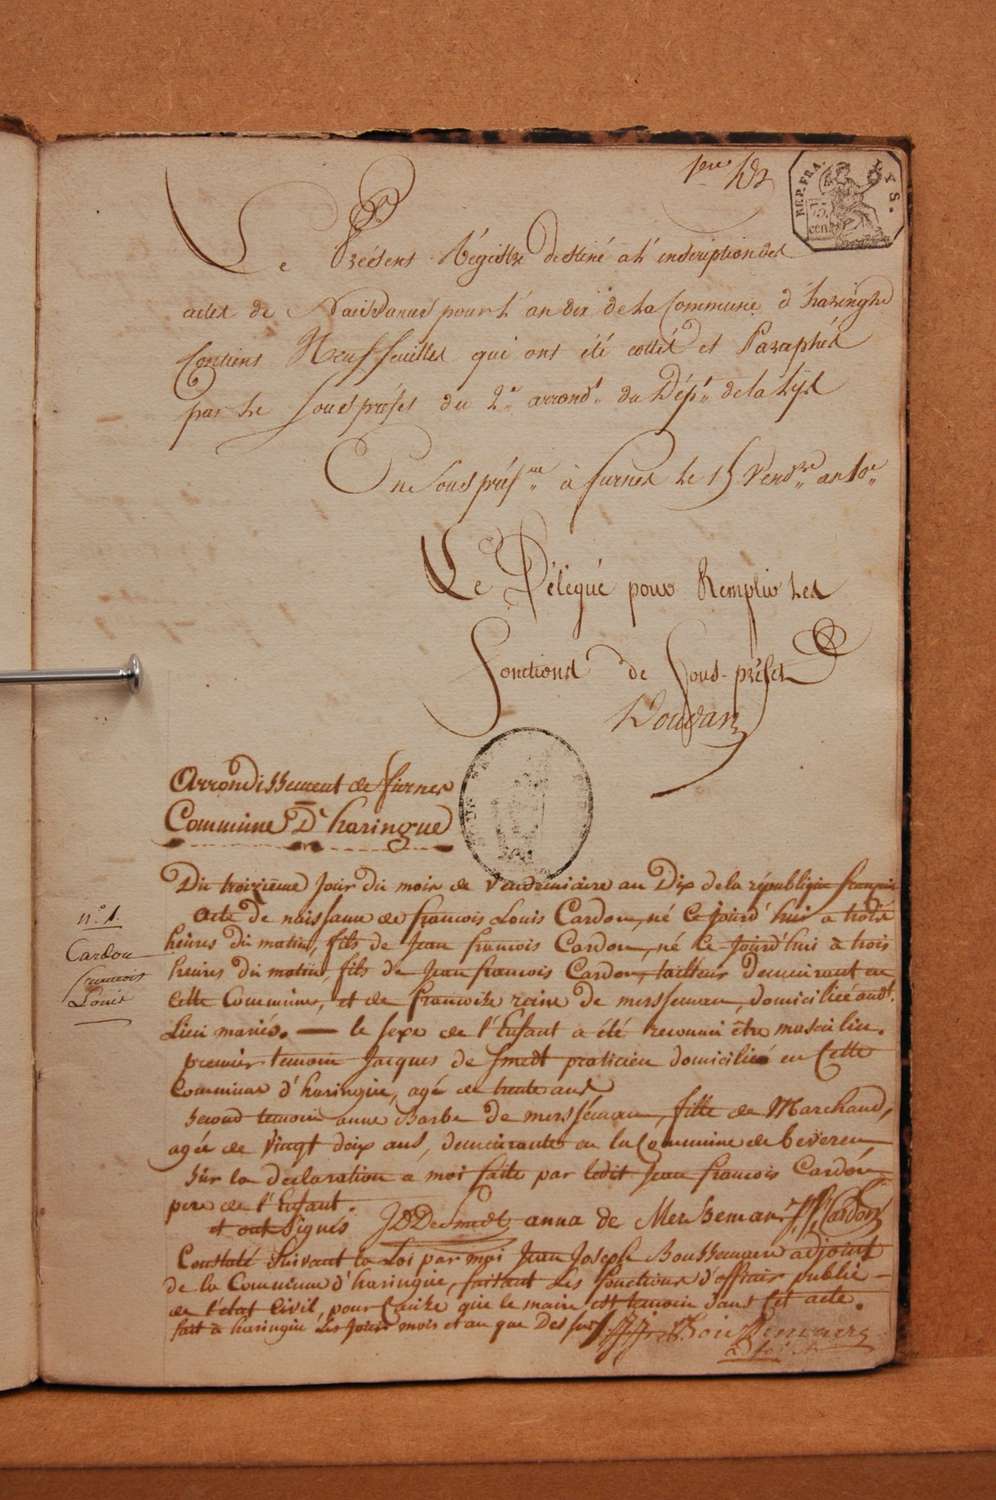 1ere
REP. FRA. LYS.
75 cen.
Le Présent Régistre destiné a l'inscription des
actes de Naissances pour l'an dix de la Commune d'haringhe
Contient Neuf feuilles qui ont été cottés et Paraphés
par le Sous préfet du 2e arrondt du Dépt de la Lys
En Sous préfre à furnes le 15 Vendre an 10e
Le Délégué pour Remplir les
Fonctions de Sous-préfet
Arrondissement de furnes
Commune D'haringue
Du troizième Jour du mois de Vendemiaire an Dix de la république françoise
n.° 1.
Cardon
francois
Louis
acte de naissance de francois Louis Cardon, né ce jourd'hui a trois
heures du matin, fils de Jean francois Cardon, né ce Jourd'hui à trois
heures du matin, fils de Jean francois Cardon, tailleur demeurant en
cette Commune, et de francoise reine de mersseman, domiciliée audt.
Lieu mariés. — le sexe de l'Enfant a été reconnu être masculin.
premier temoin Jacques de Smedt praticien domicilié en Cette
Commune d'haringue, agé de trente ans
Second temoin anne Barbe de mersseman, fille de Marchand,
agée de Vingt doix ans, demeurante en la Commune de beveren
Sur la déclaration a moi faite par ledit Jean francois Cardon
pere de l'Enfant.
et ont Signés JD DeSmedt anna de Mersseman JF Cardon
Constaté Suivant la Loi par moi Jean Joseph Boussemaere adjoint
de la Commune d'haringue, faisant les fonctions d'officier public
de l'état Civil, pour Cause que le maire est temoin dans Cet acte.
fait a haringue les Jour mois et an que Dessus JJ Boussemaere
adjoint